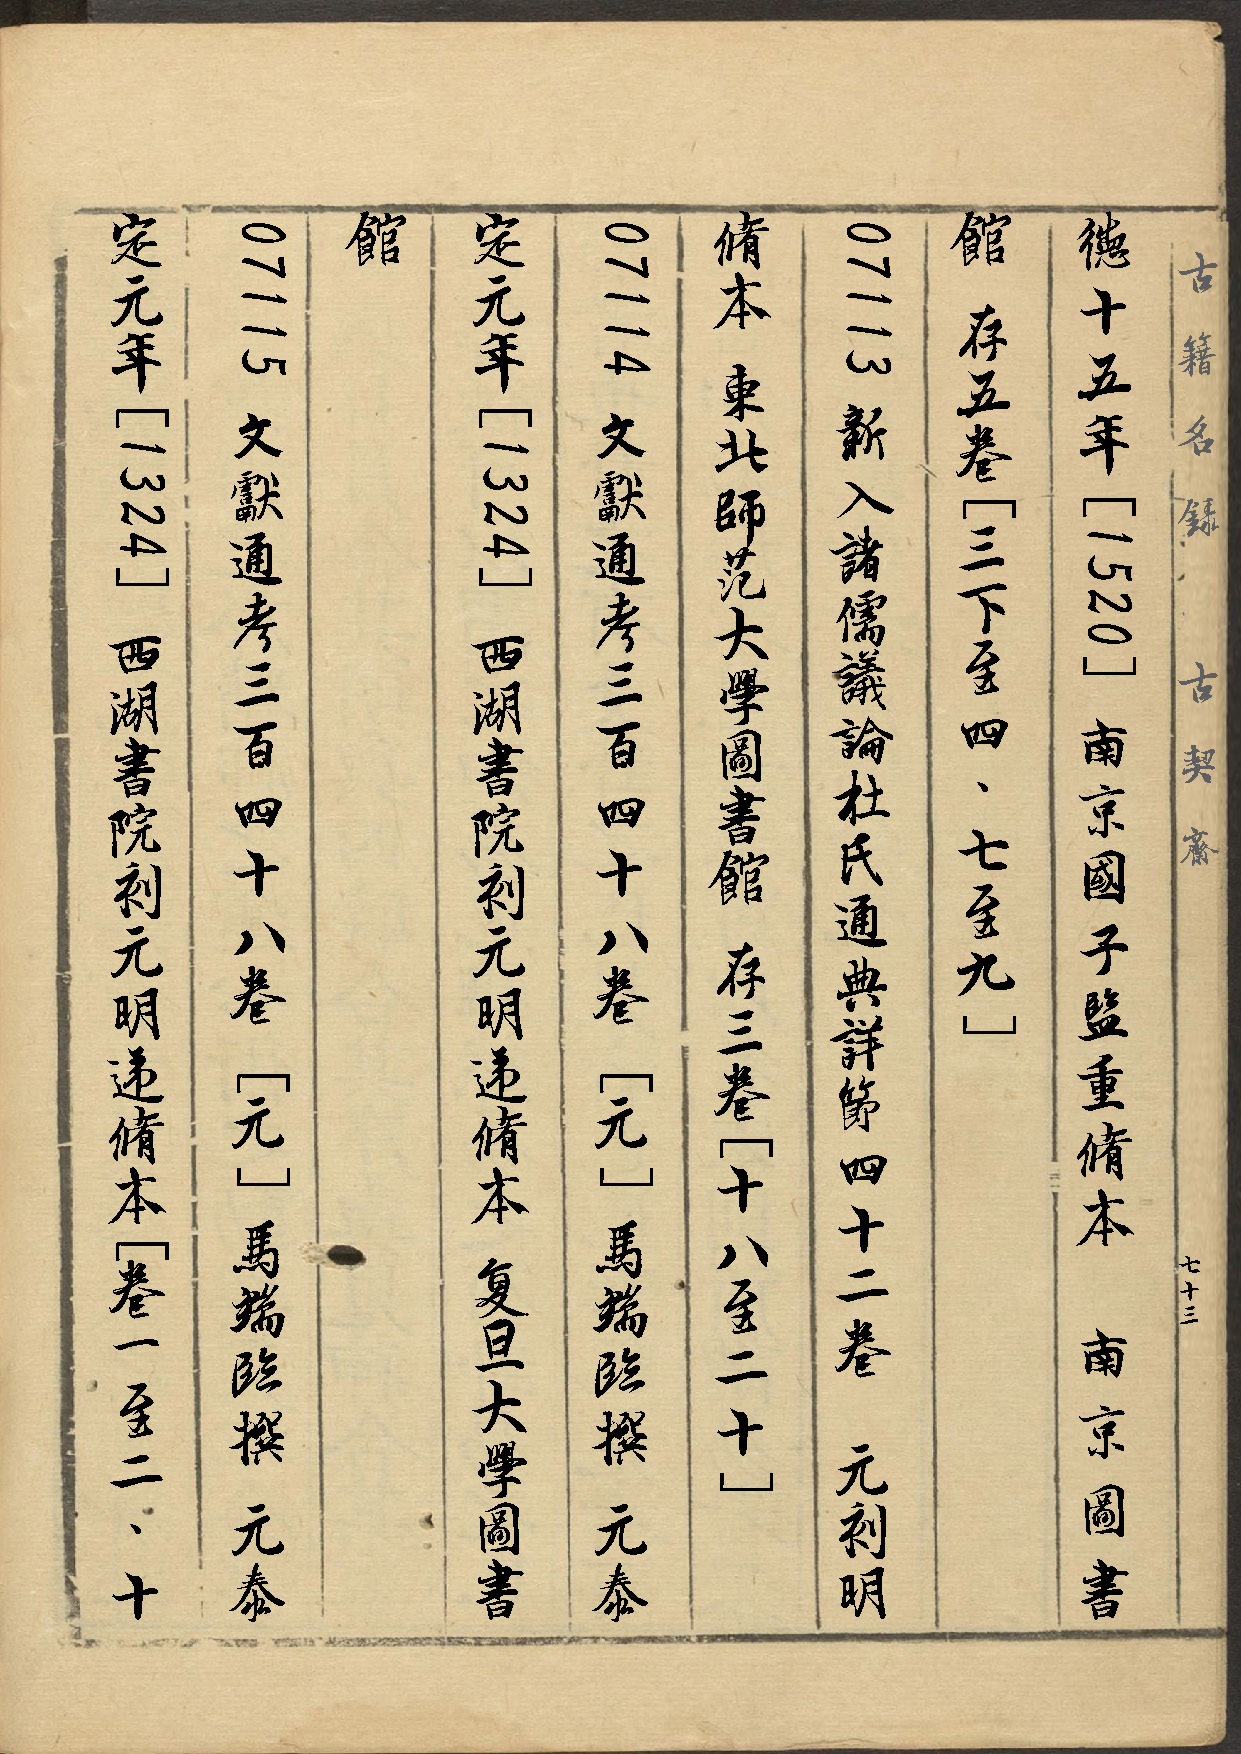 古籍名録 古契齋 七十三
德十五年［1520］南京國子監重脩本 南京圖書
館 存五卷［三下至四、七至九］
07113 新入諸儒議論杜氏通典詳節四十二卷 元刻明
脩本 東北師范大學圖書館 存三卷［十八至二十］
07114 文獻通考三百四十八卷［元］馬端臨撰 元泰
定元年［1324］ 西湖書院刻元明递脩本 复旦大學圖書
館
07115 文獻通考三百四十八卷［元］馬端臨撰 元泰
定元年［1324］ 西湖書院刻元明递脩本［卷一至二、十